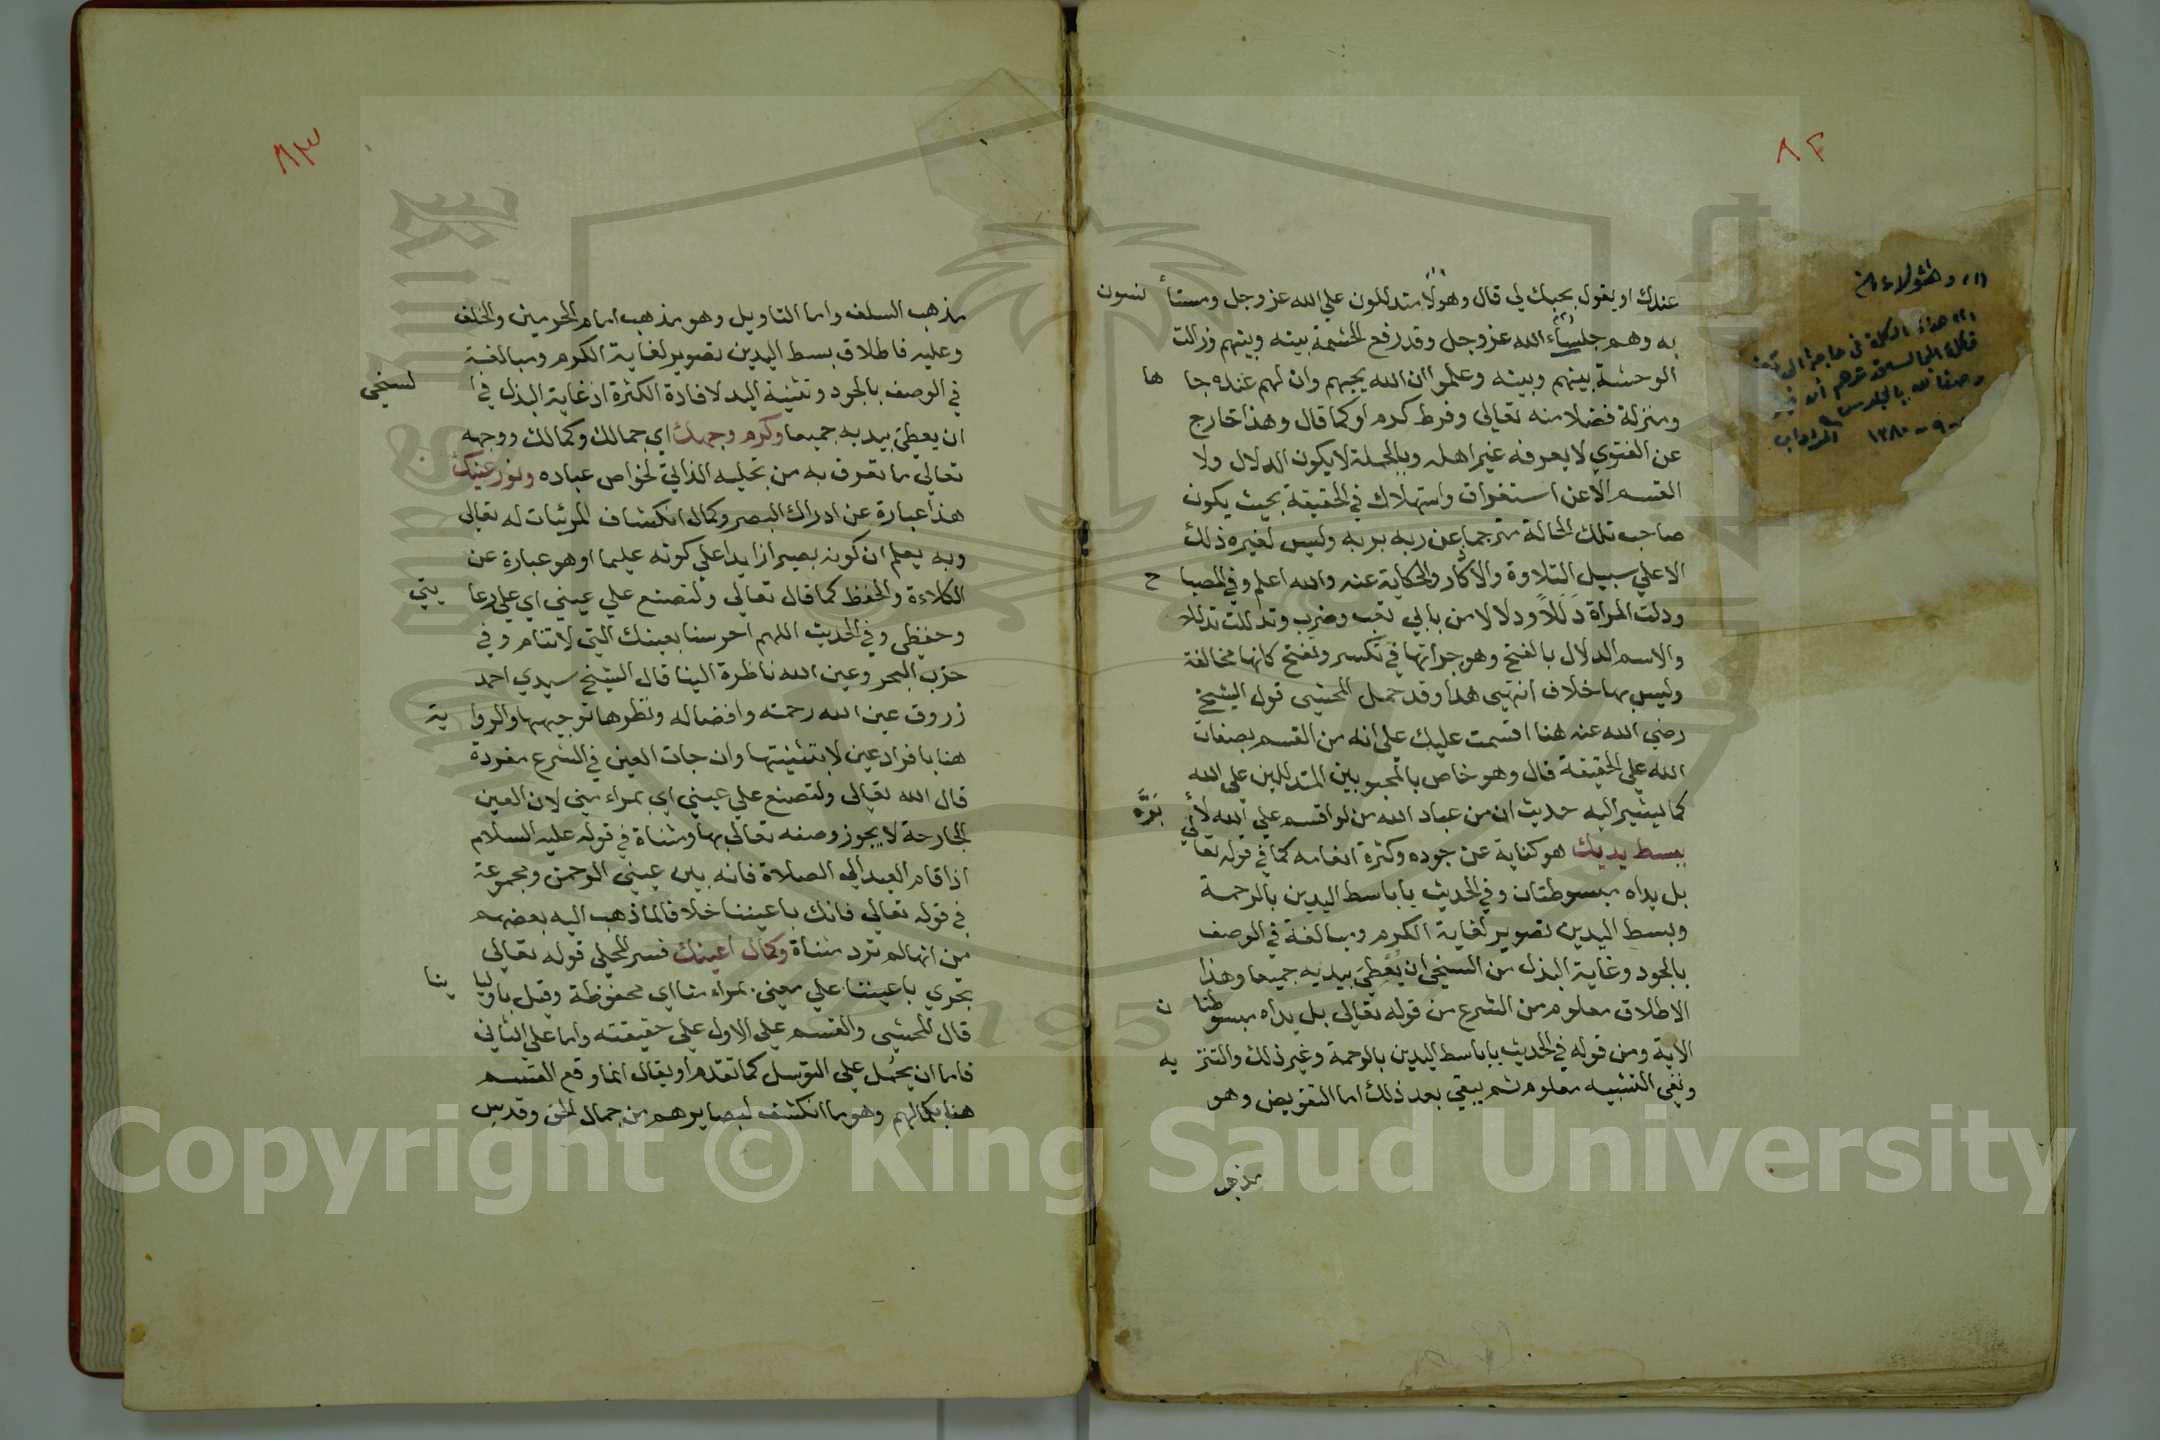 ٨٢
عندك او يقول بحبك لي قال وهولا متدللون علي الله عز وجل ومستأ نسون
به وهم جلساء الله عز وجل وقد رفع الحشمة بينه وبينهم وزالت
الوحشة بينهم وبينه وعلموا ان الله يحبهم وان لهم عنده جا ها
ومنزلة فضلا منه تعالى وفرط كدم او كما قال وهذا خارج
عن الفتوي لا يعرفه غير اهله وبالجملة لا يكون الدلال ولا
القسم الا عن استغراق واستهلاك في الحقيقة بحيث يكون
صاحب تلك الحالة مترجما عن ربه بربه وليس لغيره ذلك
الا علي سبيل التلاوة والاذكار والحكاية عنه والله اعلم وفي المصبا ح
ودلت المراة دَلَلاً ودلالا من بابي تعب وضرب وتدللت تدللا
والاسم الدلال بالفتح وهو جراتها في تكسر وتغنج كانها مخالفة
وليس بها خلاف انتهي هذا وقد حمل المحشي قول الشيخ
رضي الله عنه هنا اقسمت عليك علي انه من القسم بصفات
الله علي الحقيقة قال وهو خاص بالمحبوبين المتدللين علي الله
كما يشير اليه حديث ان من عباد الله من لو اقسم علي الله لأ بَرَّه
ببسط يديك هو كناية عن جوده وكثرة انعامه كما في قوله تعالي
بل يداه مبسوطتان وفي الحديث يا باسط اليدين بالرحمة
وبسط اليدين تصوير لغاية الكرم ومبالغة في الوصف
بالجود وغاية البذل من السخي ان يُعطِيَ بيديه جميعا وهذا
الاطلاق معلوم من الشرع من قوله تعالى بل يداه مبسوطتا ن
الاية ومن قوله في الحديث يا باسط اليدين بالرحمة وغير ذلك والتنز يه
ونفي التشبيه معلوم ثم يبقي بعد ذلك اما التفويض وهو
مذهب
(١) وهؤلاء
(٢) هذه الكلمة في حاجة الى
١٣٨٠
٨٣
مذهب السلف واما التاويل وهو مذهب امام الحرمين والخلف
وعليه فاطلاق بسط اليدين تصوير لغاية الكرم ومبالغة
في الوصف بالجود وتثنية اليد لافادة الكثرة اذ غاية البذل في ا لسخي
ان يعطي بيديه جميعا وكرم وجهك اي جمالك وكمالك ووجهه
تعالي ما تعرف به من تجليه الذاتي لخواص عباده ونور عينك
هذا عبارة عن ادراك البصر وكمال انكشاف المرئيات له تعالى
وبه يعلم ان كونه بصيرا زايدا علي كونه عليما او هو عبارة عن
الكلاءة والحفظ كما قال تعالى ولتصنع علي عيني اي علي رعا يتي
وحفظي وفي الحديث اللهم احرسنا بعينك التي لا تنام وفي
حزب البحر وعين الله ناظرة الينا قال الشيخ سيدي احمد
زروق عين الله رحمته وافضاله ونظرها توجيهها والروا ية
هنا بافراد عين لا بتثنيتها وان جات العين في الشرع مفردة
قال الله تعالى ولتصنع علي عيني اي بمراء مني لان العين
الجارحة لا يجوز وصفه تعالى بها ومثناة في قوله عليه السلام
اذا قام العبد الي الصلاة فانه بين عيني الرحمن ومجموعة
في قوله تعالي فانك باعيننا خلافا لما ذهب اليه بعضهم
من انها لم ترد مثناة وكمال اعينك فسر المحلي قوله تعالى
تجري باعيننا علي معنى بمراء منا اي محفوظة وقيل باوليا ينا
قال المحشي والقسم علي الاول علي حقيقته واما علي الثاني
فاما ان يحمل علي التوسل كما تقدم او يقال انما وقع القسم
هنا بكمالهم وهو ما انكشف لبصايرهم من جمال الحق وقدس
Copyright © King Saud University
1957